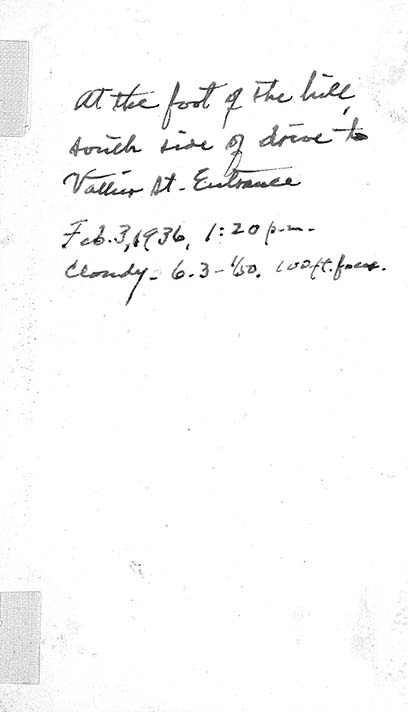 At the foot of the hill,
south side of drive to
St. Entrance
Feb. 3, 1936, 1:20 p.m.
Cloudy - 6.3 - 1/50. 100 ft. focus.